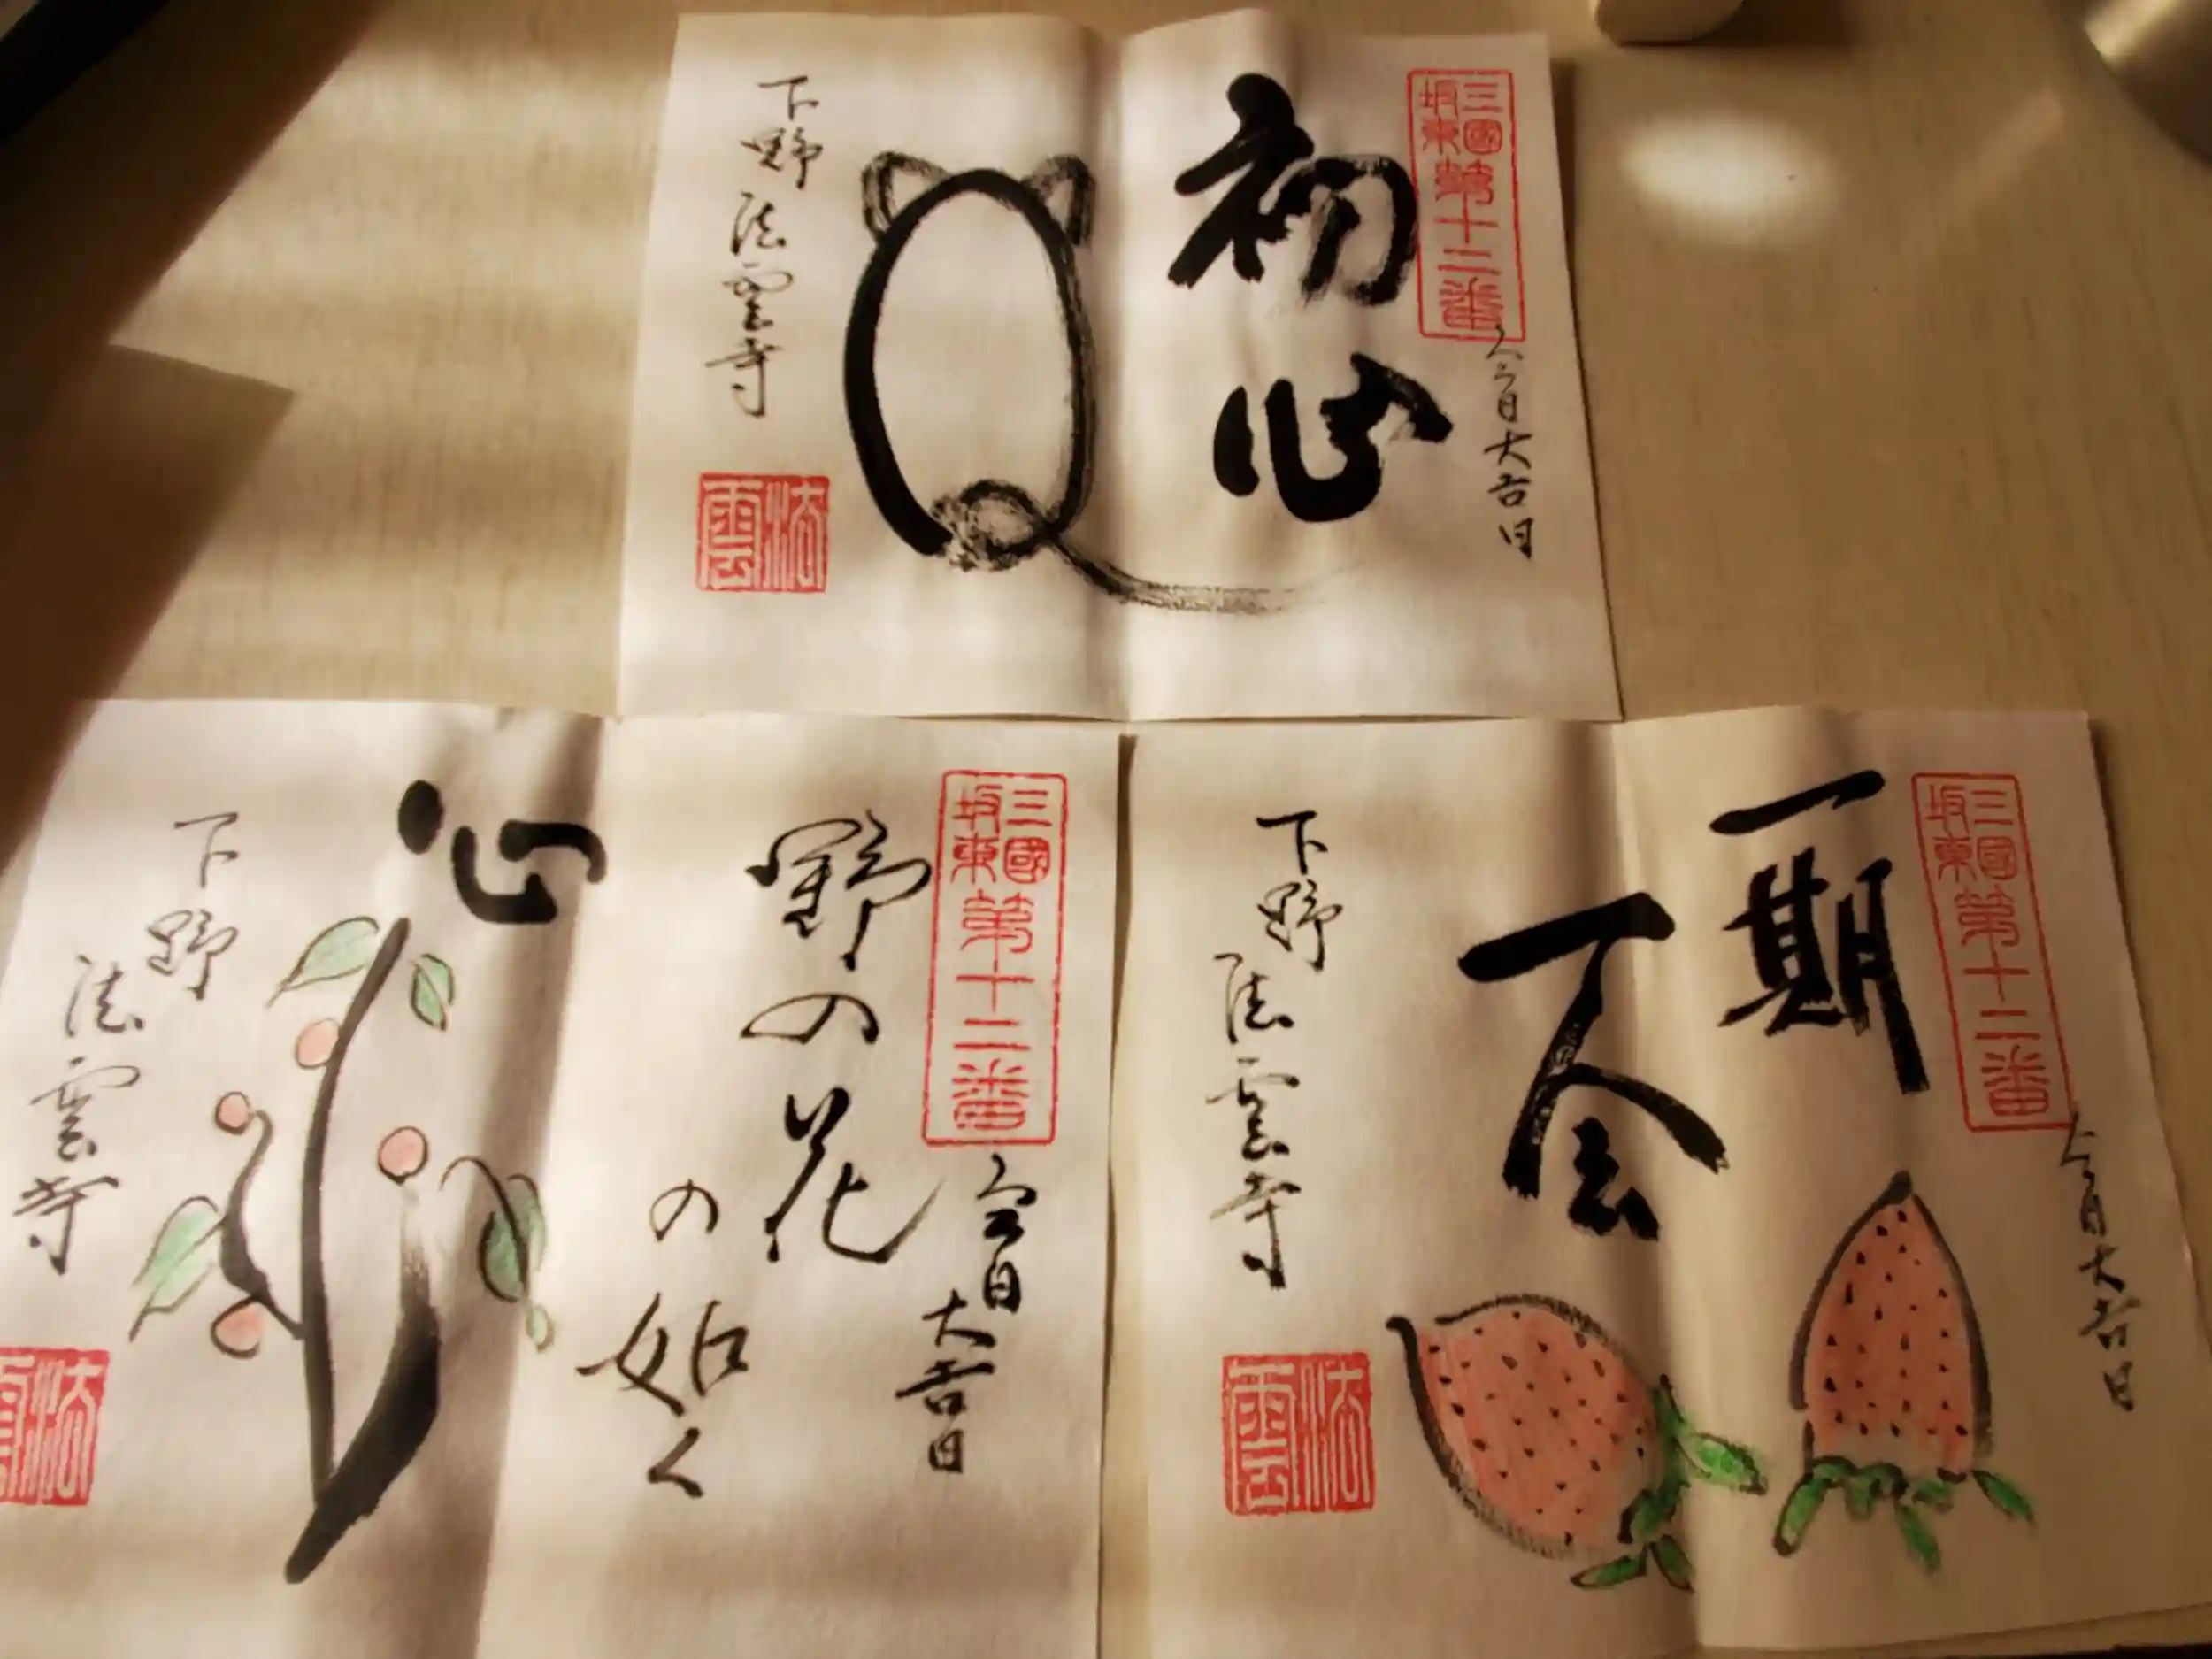 三國
坂東
第十二番
初心
今日大吉日
下野
法雲寺
法雲
三國
坂東
第十二番
今日
大吉日
野の花
の如く
心
下野
法雲寺
法雲
三國
坂東
第十二番
今日大吉日
一期
一会
下野
法雲寺
法雲